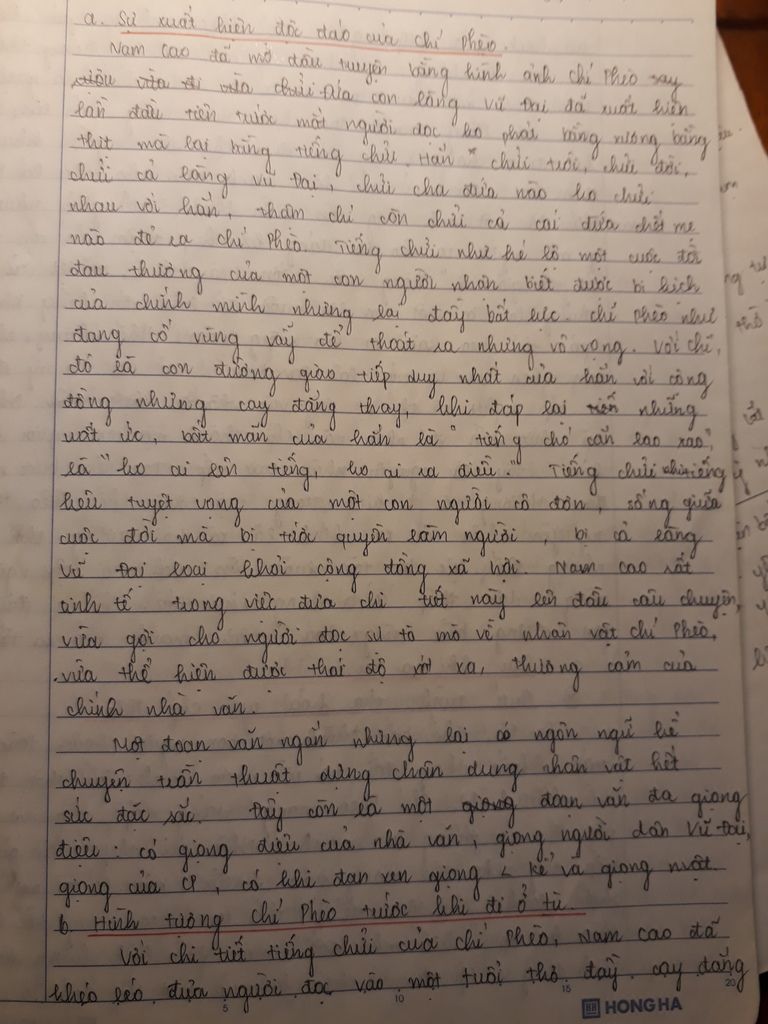 a. Sự xuất hiện độc đáo của Chí Phèo.
Nam Cao đã mở đầu truyện bằng hình ảnh Chí Phèo say
chửi. Đứa con làng Vũ Đại đã xuất hiện
lần đầu tiên trước mặt người đọc ko phải bằng xương bằng
thịt mà lại bằng tiếng chửi. Hắn " chửi trời, chửi đời,
chửi cả làng Vũ Đại, chửi cha đứa nào ko chửi
nhau với hắn, thậm chí còn chửi cả cái đứa chết mẹ
nào đẻ ra Chí Phèo. Tiếng chửi như hé lộ một cuộc đời
đau thương của một con người nhận biết được bi kịch
của chính mình nhưng lại đầy bất lực. Chí Phèo như
đang cố vùng vẫy để thoát ra nhưng vô vọng. Với Chí,
đó là con đường giao tiếp duy nhất của hắn với cộng
đồng nhưng cay đắng thay, khi đáp lại những
uất ức, bất mãn của hắn là " tiếng chó cắn lao xao",
là " ko ai lên tiếng, ko ai ra điều." Tiếng chửi như tiếng
kêu tuyệt vọng của một con người cô đơn, sống giữa
cuộc đời mà bị tước quyền làm người, bị cả làng
Vũ Đại loại khỏi cộng đồng xã hội. Nam Cao rất
tinh tế trong việc đưa chi tiết này lên đầu câu chuyện,
vừa gợi cho người đọc sự tò mò về nhân vật Chí Phèo,
vừa thể hiện được thái độ xót xa, thương cảm của
chính nhà văn.
Một đoạn văn ngắn nhưng lại có ngôn ngữ kể
chuyện trần thuật dựng chân dung nhân vật hết
sức đặc sắc. Đây còn là một đoạn văn đa giọng
điệu: có giọng điệu của nhà văn, giọng người dân Vũ Đại,
giọng của CP, có khi đan xen giọng kể và giọng
b. Hình tượng Chí Phèo trước khi đi ở tù.
Với chi tiết tiếng chửi của Chí Phèo, Nam Cao đã
khéo léo đưa người đọc vào một tuổi thơ đầy cay đắng
5 10 15 20
HONG HA